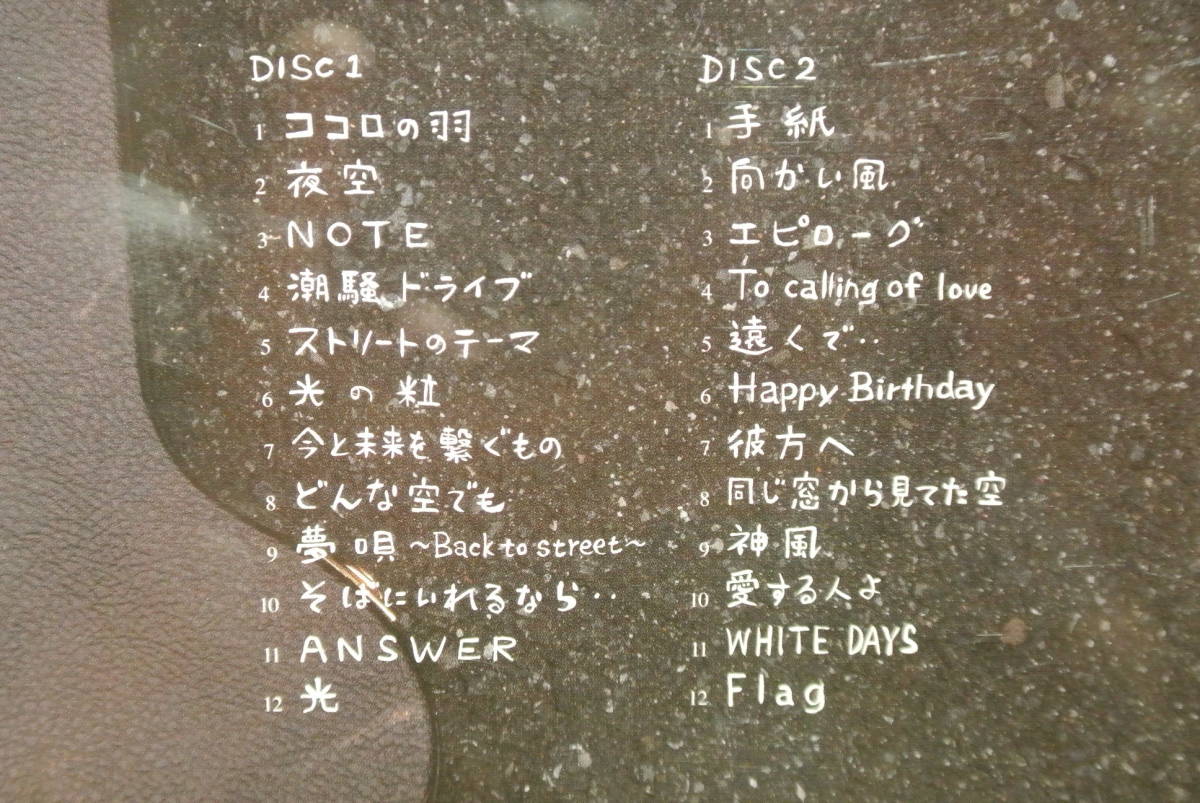 DISC 1
1 ココロの羽
2 夜空
3 NOTE
4 潮騒ドライブ
5 ストリートのテーマ
6 光の粒
7 今と未来を繋ぐもの
8 どんな空でも
9 夢唄 ~Back to street~
10 そばにいれるなら‥
11 ANSWER
12 光
DISC 2
1 手紙
2 向かい風
3 エピローグ
4 To calling of love
5 遠くで‥
6 Happy Birthday
7 彼方へ
8 同じ窓から見てた空
9 神風
10 愛する人よ
11 WHITE DAYS
12 Flag